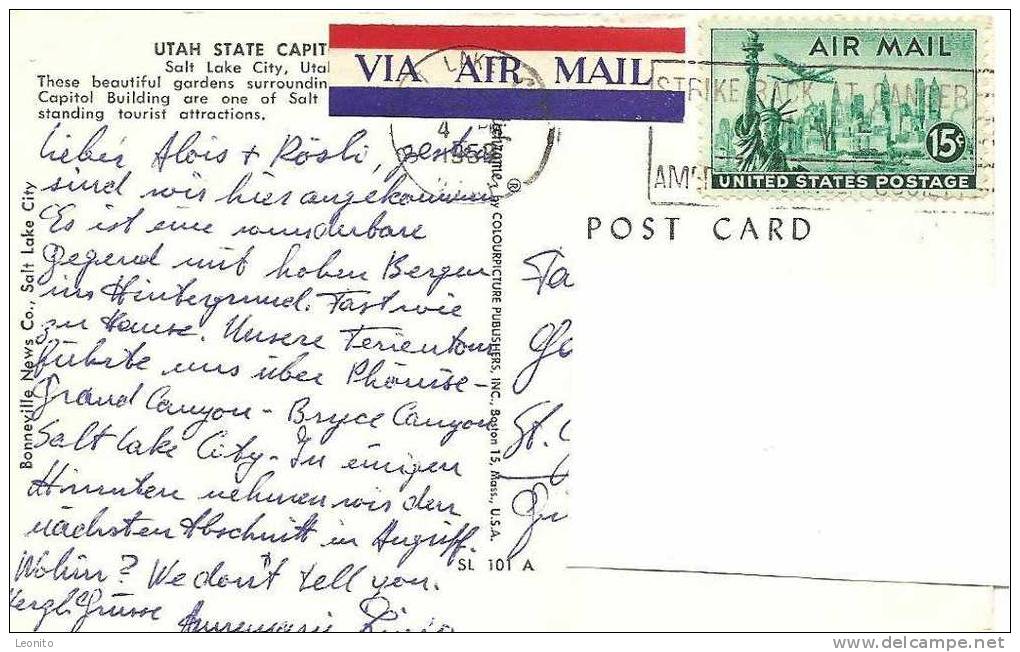 UTAH STATE CAPIT
Salt Lake City, Utah
These beautiful gardens surroundin
Capitol Building are one of Salt
standing tourist attractions.
VIA AIR MAIL
LAKE
4
195
STRIKE BACK AT CANCER
AM
AIR MAIL
15¢
UNITED STATES POSTAGE
POST CARD
Lieber Alois + Rösli, gestern
sind wir hier angekommen
Es ist eine wunderbare
Gegend mit hohen Bergen
im Hintergrund. Fast wie
zu Hause. Unsere Ferientour
führte uns über Phönix-
Grand Canyon - Bryce Canyon
Salt Lake City. In einigen
Minuten nehmen wir den
nächsten Abschnitt in Angriff.
Wohin? We don't tell you.
Herzl. Grüsse
Annemarie
Bonneville News Co., Salt Lake City
by COLOURPICTURE PUBLISHERS, INC., Boston 15, Mass., U.S.A.
®
SL 101 A
Fa
Ge
St. G
Leonito
www.delcampe.net